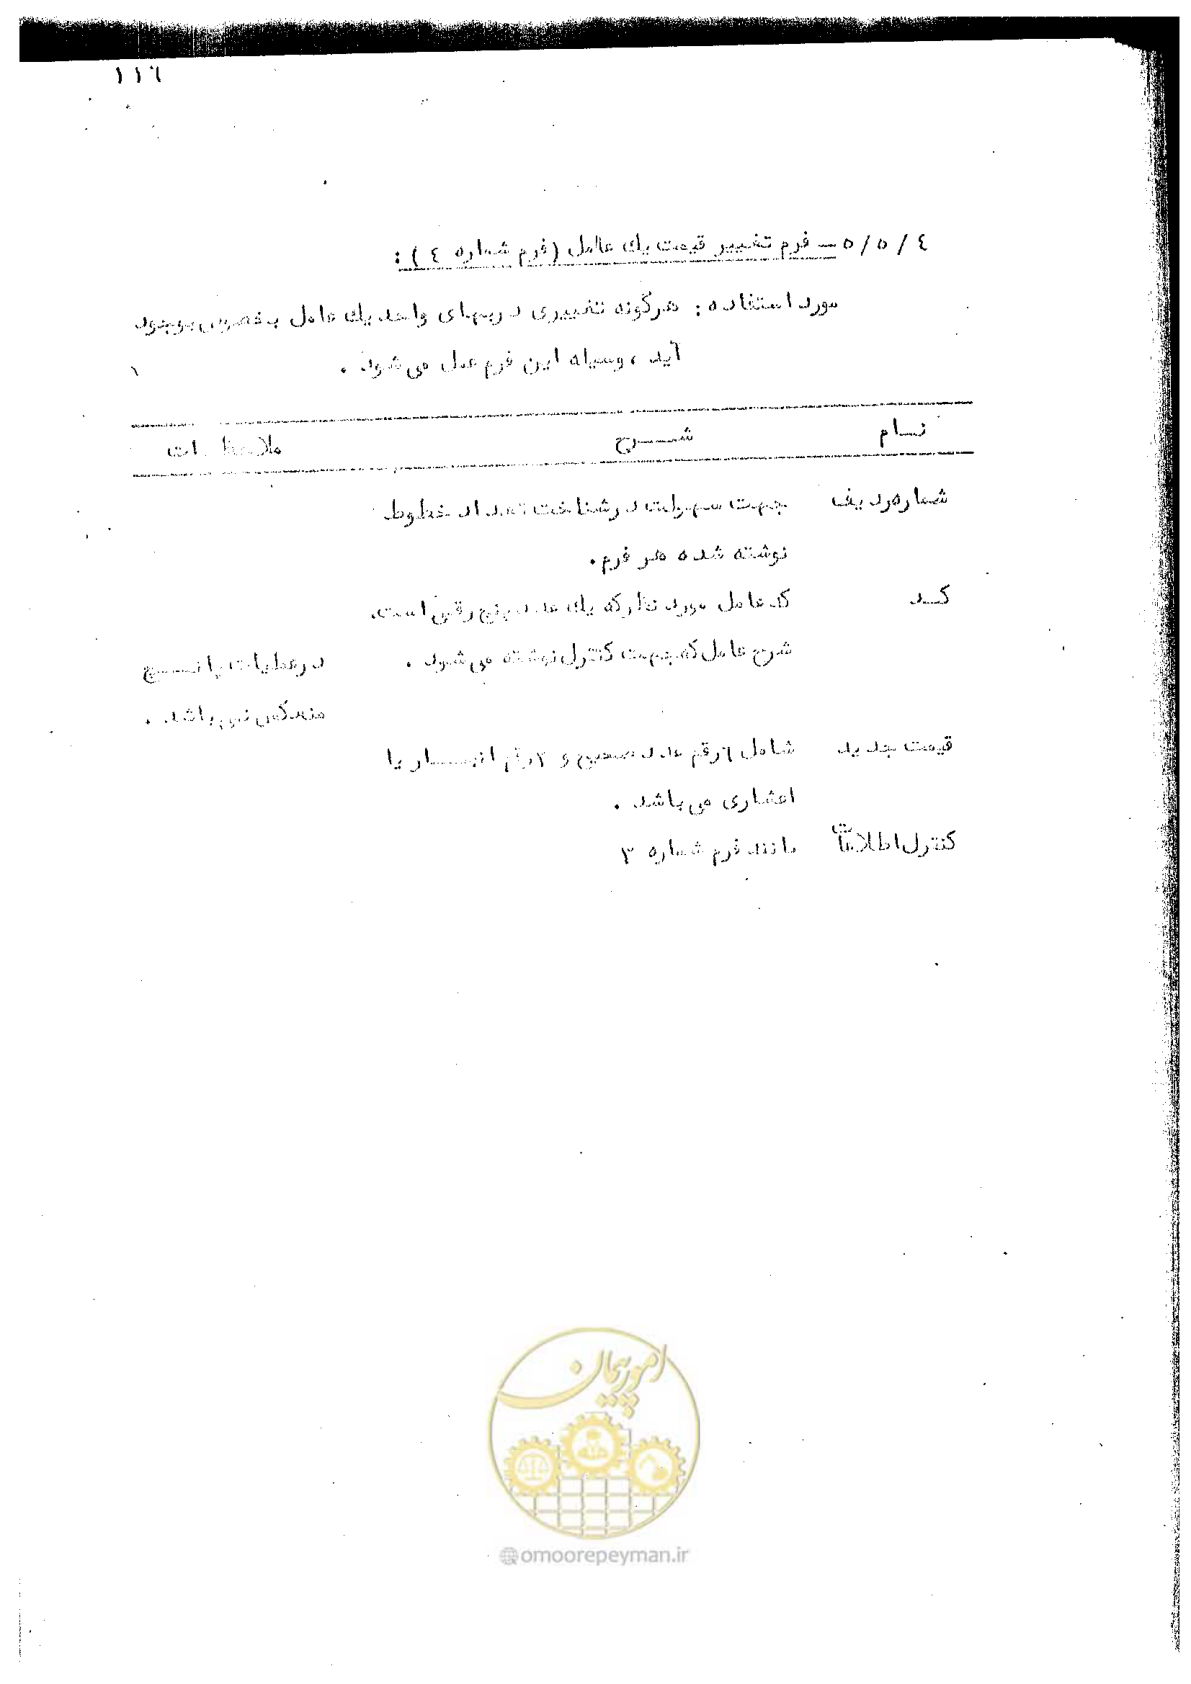 ١١٦
٥/٥/٤ – فرم تغییر قیمت یك عامل (فرم شماره ٤) :
مورد استفاده : هرگونه تغییری در بهای واحد یك عامل بخصوص بوجود
آید ، وسیله این فرم عمل می‌شود .
نــام شــرح ملاحظات
شماره ردیف جهت سهولت در شناخت تعداد خطوط
نوشته شده هر فرم .
کــد کد عامل مورد نظر که یك عدد پنج رقمی است.
شرح عامل که جهت کنترل نوشته می‌شود . در عملیات پانــچ
منعکس نمی‌باشد .
قیمت جدید شامل ٦ رقم عدد صحیح و ٢ رقم اعشــار یا
اعشاری می‌باشد .
کنترل اطلاعات مانند فرم شماره ٣
امور پیمان
@omoorepeyman.ir